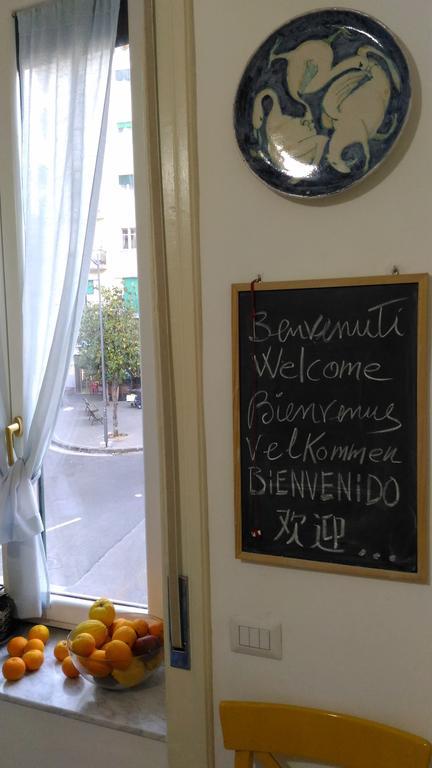 Benvenuti
Welcome
Bienvenus
Velkommen
BiENVENiDO
欢迎...